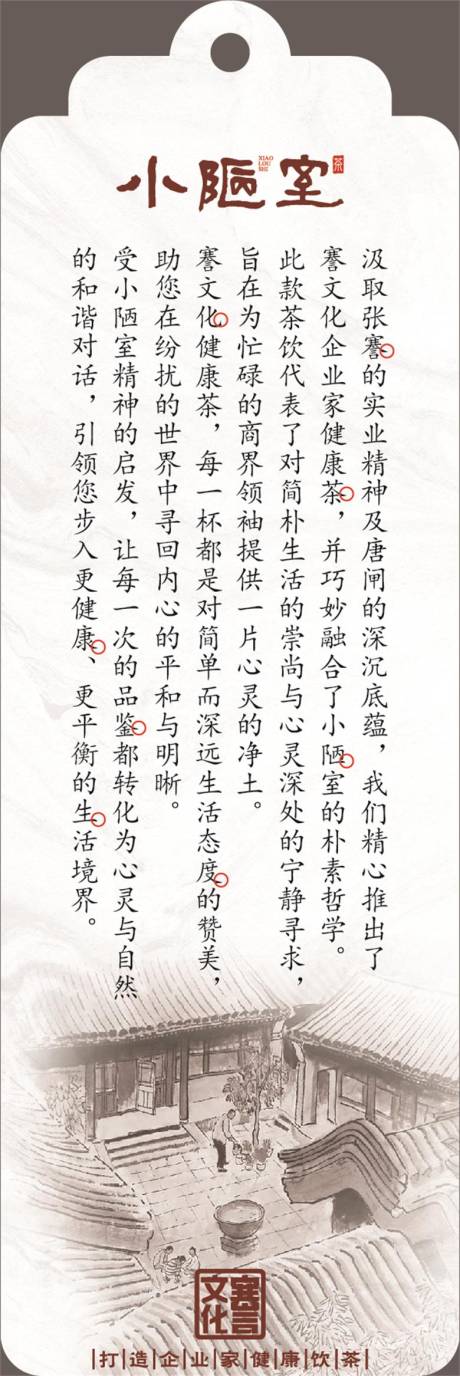 小陋室
XIAO
LOU
SHI
茶
汲取张謇的实业精神及唐闸的深沉底蕴，我们精心推出了
謇文化企业家健康茶，并巧妙融合了小陋室的朴素哲学。
此款茶饮代表了对简朴生活的崇尚与心灵深处的宁静寻求，
旨在为忙碌的商界领袖提供一片心灵的净土。
謇文化健康茶，每一杯都是对简单而深远生活态度的赞美，
助您在纷扰的世界中寻回内心的平和与明晰。
受小陋室精神的启发，让每一次的品鉴都转化为心灵与自然
的和谐对话，引领您步入更健康、更平衡的生活境界。
謇文化
|打|造|企|业|家|健|康|饮|茶|